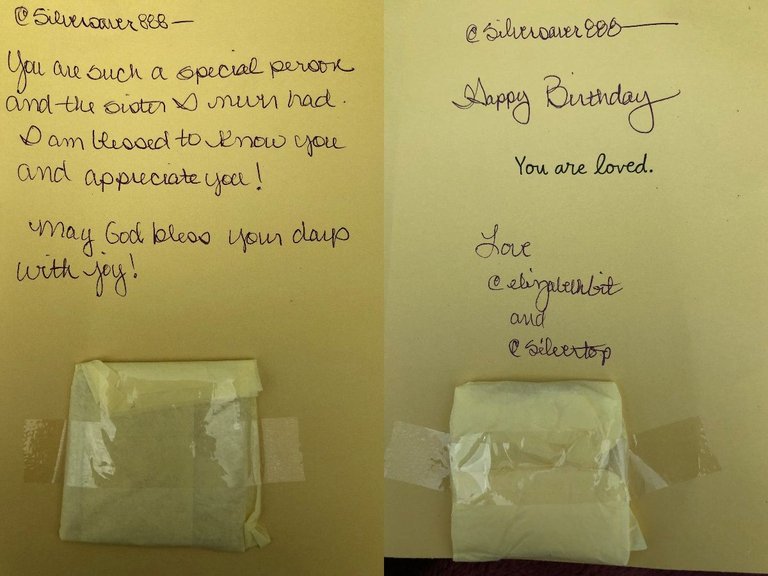 @Silversaver888—
You are such a special person
and the sister I never had.
I am blessed to know you
and appreciate you!
May God bless your days
with joy!
@Silversaver888—
Happy Birthday
You are loved.
Love
@elizabethbit
and
@Silvertop